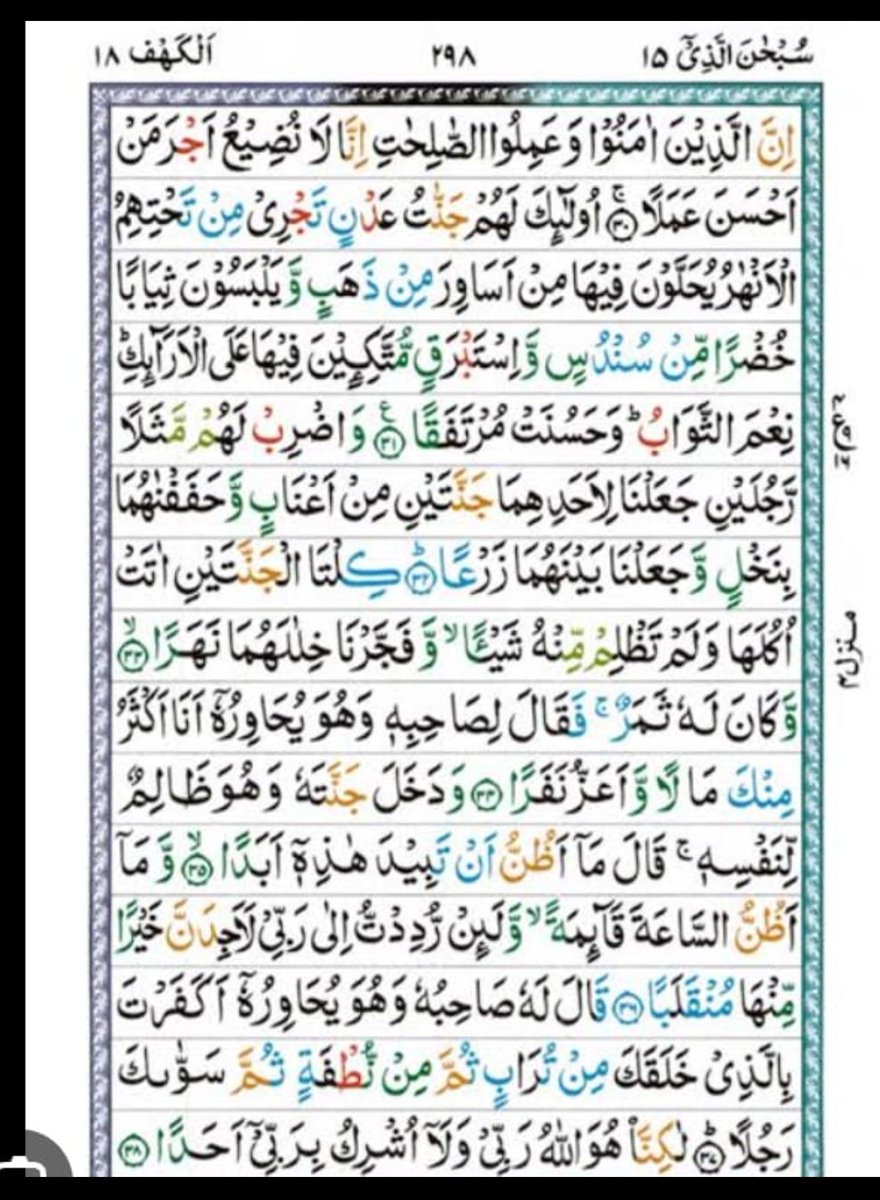 سُبْحٰنَ الَّذِیْۤ ١٥ ٢٩٨ اَلْكَهْف ١٨
اِنَّ الَّذِیْنَ اٰمَنُوْا وَ عَمِلُوا الصّٰلِحٰتِ اِنَّا لَا نُضِیْعُ اَجْرَ مَنْ
اَحْسَنَ عَمَلًا ۚ ﴿٣٠﴾ اُولٰٓىِٕكَ لَهُمْ جَنّٰتُ عَدْنٍ تَجْرِیْ مِنْ تَحْتِهِمُ
الْاَنْهٰرُ یُحَلَّوْنَ فِیْهَا مِنْ اَسَاوِرَ مِنْ ذَهَبٍ وَّ یَلْبَسُوْنَ ثِیَابًا
خُضْرًا مِّنْ سُنْدُسٍ وَّ اِسْتَبْرَقٍ مُّتَّكِـِٕیْنَ فِیْهَا عَلَی الْاَرَآىِٕكِ ؕ
نِعْمَ الثَّوَابُ ؕ وَ حَسُنَتْ مُرْتَفَقًا ﴿٣١﴾ ع وَ اضْرِبْ لَهُمْ مَّثَلًا
رَّجُلَیْنِ جَعَلْنَا لِاَحَدِهِمَا جَنَّتَیْنِ مِنْ اَعْنَابٍ وَّ حَفَفْنٰهُمَا
بِنَخْلٍ وَّ جَعَلْنَا بَیْنَهُمَا زَرْعًا ؕ ﴿٣٢﴾ كِلْتَا الْجَنَّتَیْنِ اٰتَتْ
اُكُلَهَا وَ لَمْ تَظْلِمْ مِّنْهُ شَیْـًٔا ۙ وَّ فَجَّرْنَا خِلٰلَهُمَا نَهَرًا ۙ ﴿٣٣﴾
وَّ كَانَ لَهٗ ثَمَرٌ ۚ فَقَالَ لِصَاحِبِهٖ وَ هُوَ یُحَاوِرُهٗۤ اَنَا اَكْثَرُ
مِنْكَ مَالًا وَّ اَعَزُّ نَفَرًا ﴿٣٤﴾ وَ دَخَلَ جَنَّتَهٗ وَ هُوَ ظَالِمٌ
لِّنَفْسِهٖ ۚ قَالَ مَاۤ اَظُنُّ اَنْ تَبِیْدَ هٰذِهٖۤ اَبَدًا ۙ ﴿٣٥﴾ وَّ مَاۤ
اَظُنُّ السَّاعَةَ قَآىِٕمَةً ۙ وَّ لَىِٕنْ رُّدِدْتُّ اِلٰی رَبِّیْ لَاَجِدَنَّ خَیْرًا
مِّنْهَا مُنْقَلَبًا ﴿٣٦﴾ قَالَ لَهٗ صَاحِبُهٗ وَ هُوَ یُحَاوِرُهٗۤ اَكَفَرْتَ
بِالَّذِیْ خَلَقَكَ مِنْ تُرَابٍ ثُمَّ مِنْ نُّطْفَةٍ ثُمَّ سَوّٰىكَ
رَجُلًا ؕ ﴿٣٧﴾ لٰكِنَّا۠ هُوَ اللّٰهُ رَبِّیْ وَ لَاۤ اُشْرِكُ بِرَبِّیْۤ اَحَدًا ﴿٣٨﴾
منزل ٤